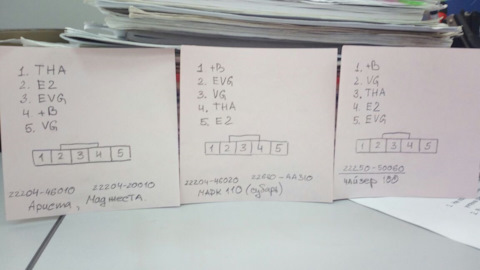 1. THA
2. E2
3. EVG
4. +B
5. VG
1 2 3 4 5
22204-46010 22204-20010
Ариста, Маджеста
1. +B
2. EVG
3. VG
4. THA
5. E2
1 2 3 4 5
22204-46020
МАРК 110 (субару)
1. +B
2. VG
3. THA
4. E2
5. EVG
1 2 3 4 5
22250-50060